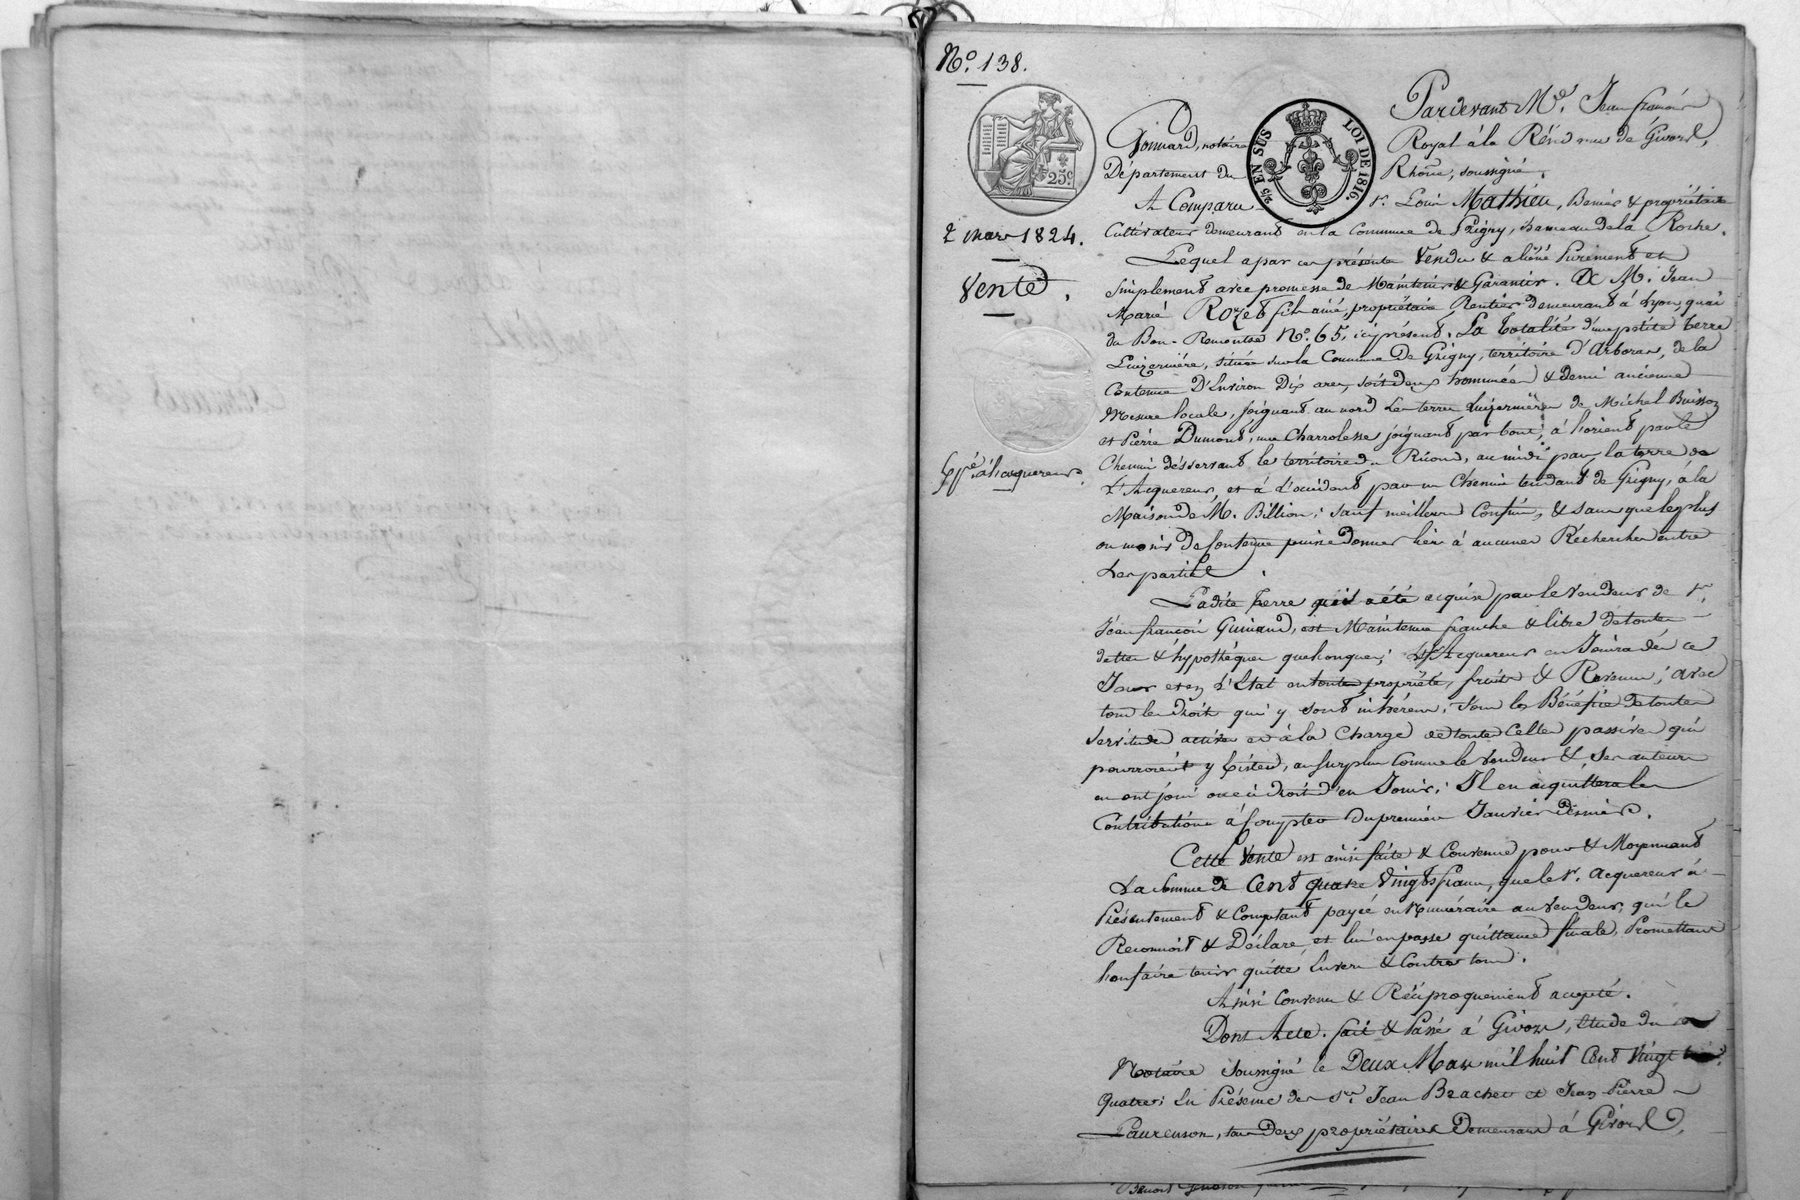 N.º 138.
Pardevant M.e Jean françois
Gonnard, notaire Royal à la Résidence de Givors,
Département du Rhône, soussigné.
25 c.
2/5 EN SUS
LOI DE 1816.
A Comparu Sr. Louis Mathieu, Dernier & propriétaire
2 mars 1824.
Cultivateur demeurant en la Commune de Grigny, hameau de la Roche.
Vente.
Lequel a par ces présentes Vendu & aliéné Purement et
Simplement avec promesse de Maintenir & Garantir. A M. Jean
Marie Rozet fils ainé, propriétaire Rentier demeurant à Lyon, quai
du Bon-Remontre N.º 65, ici présent. La totalité d'une petite terre
Luizernière, située sur la Commune De Grigny, territoire d'Arboras, de la
Contenue D'Environ Dix ares, soit deux hommées & demi ancienne
Mesure locale, joignant au nord Les terres Luizernières de Michel Buisson
et Pierre Dumont, une Charrolesse joignant par bout, à l'orient par le
Expé. à l'acquereur.
Chemin désservant le territoire d. , au midi par la terre de
L'Acquereur, et à L'occident par un Chemin tendant de Grigny, à la
Maison de M. Billion; sauf meilleurs Confins, & sans que le plus
ou moins de Contenue puisse donner lieu à aucunes Récherches entre
Les parties.
Ladite terre qui a été acquise par le Vendeur de Sr.
Jean françois Guinand, est Maintenue franche & libre de toutes
dettes & hypothéques quelconques; L'Acquereur en Jouira dès ce
Jour et en L'Etat en toute propriété, fruits & Revenus; avec
tous les Droits qui y sont inhérens, Sous le Bénéfice de toutes
Servitudes actives et à la Charge de toutes Celles passives qui
pourroient y Exister, au surplus Comme le vendeur & Ses auteurs
en ont joui ou eu Droit d'en Jouir; Il en acquittera les
Contributions à Compter du premier Janvier Dernier.
Cette Vente est ainsi faite & Convenue pour & Moyennant
La Somme de Cent quatre Vingts francs, que le Sr. Acquereur à
Présentement & Comptant payée en Numéraire au Vendeur, qui le
Reconnoit & Déclare, et lui en passe quittance finale, Promettant
l'en faire tenir quitte Envers & Contre tous.
Ainsi Convenu & Réciproquement accepté.
Dont Acte. fait & Passé à Givors, Etude du
Notaire Soussigné le Deux Mars mil huit Cent Vingt
Quatre; En Présence des Srs. Jean Brachet et Jean Pierre
Laurenson, tous Deux propriétaires Demeurant à Givors,